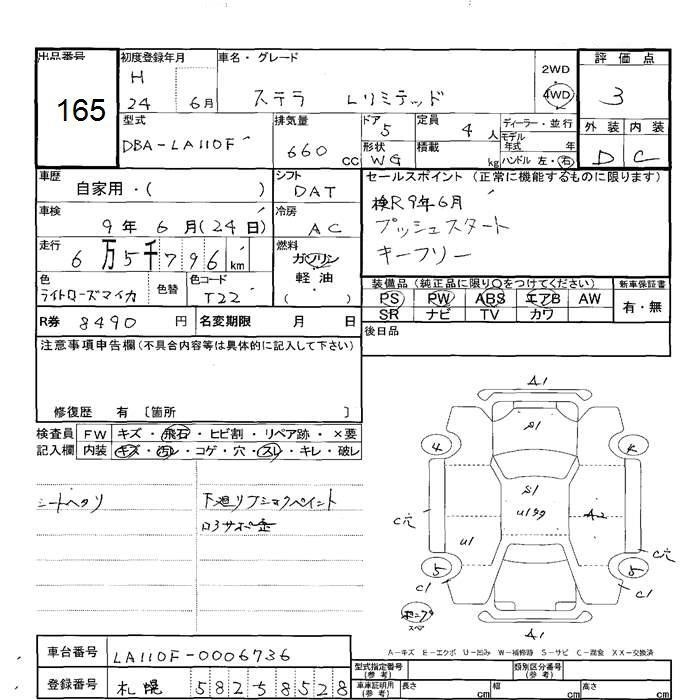 出品番号
165
初度登録年月
H
24 6月
車名・グレード
ステラ Lリミテッド
2WD
4WD
評価点
3
外装 内装
D C
型式
DBA-LA110F
排気量
660 CC
ドア 5
形状 WG
定員 4 人
積載 kg
ディーラー・並行
モデル年式 年
ハンドル 左・右
車歴
自家用・( )
シフト
DAT
車検
9年6月(24日)
冷房
AC
走行
6万5千796km
燃料
ガソリン
軽油
( )
色
ライトローズマイカ
色替
色コード
T22
R券 8490 円
名変期限 月 日
セールスポイント(正常に機能するものに限ります)
検R9年6月
プッシュスタート
キーフリー
装備品(純正品に限り○をつけてください)
PS PW ABS エアB AW
SR ナビ TV カワ
新車保証書
有・無
後日品
注意事項申告欄(不具合内容等は具体的に記入して下さい)
修復歴 有 〔箇所 〕
検査員記入欄
FW キズ・飛石・ヒビ割・リペア跡・×要
内装 キズ・汚レ・コゲ・穴・スレ・キレ・破レ
シートヘタリ
下廻り
A1
S1
4
S1
A2
C穴
U1
C穴
5 5
C1 C1
スペア
A1
A-キズ E-エクボ U-凹み W-補修跡 S-サビ C-腐食 XX-交換済
車台番号 LA110F-0006736
登録番号 札幌 582 5 8528
型式指定番号(参考)
類別区分番号(参考)
車庫証明用(参考)
長さ cm 幅 cm 高さ cm